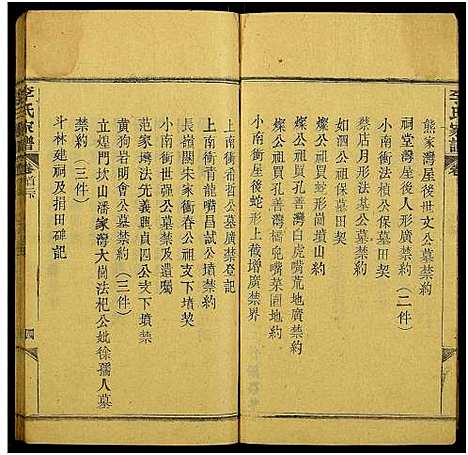 李氏家譜
熊家灣屋後世文公墓禁約
祠堂灣屋後人形廣禁約（二件）
小南衝法楨公保墓田契
蔡店月形法基公墓禁約
如泗公祖保墓田契
燦公祖蛇形崗墳山約
燦公祖孔善灣白虎嘴荒地廣禁約
燦公祖孔善灣樠兜嘴菜園地約
小南衝屋後蛇形上截增廣禁界
上南衝希哲公墓廣禁登記
上南衝青龍嘴昌試公墳禁約
長嶺關朱家衝春公祖支下墳契
小南衝世強公墓禁及遺囑
范家塝法先義興貞四公支下墳禁
黃狗岩明會公墓禁約（三件）
立煌門坎山潘家灣大崗法杞公妣徐孺人墓
禁約（三件）
斗林建祠及捐田碑記
李氏家譜
卷首
四